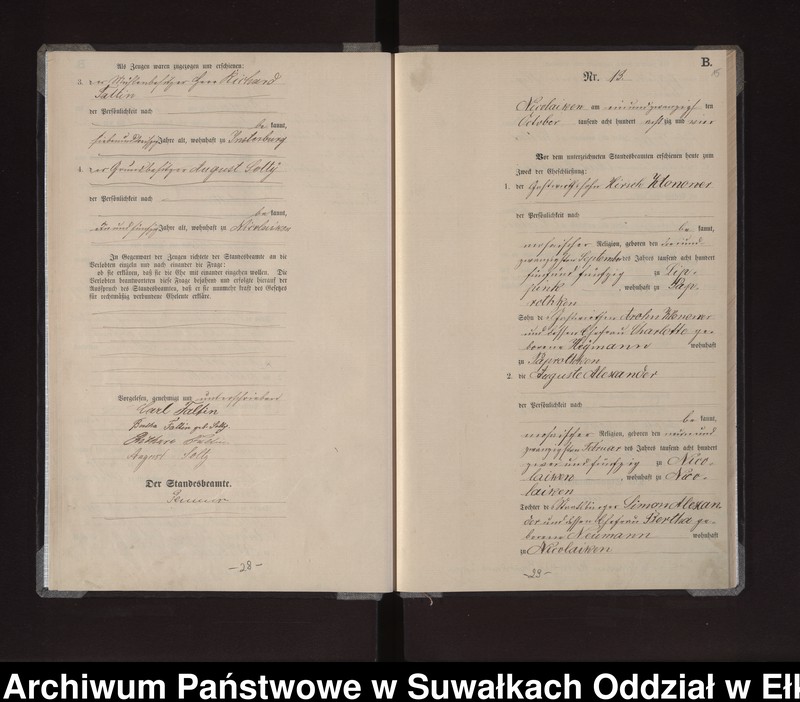 Als Zeugen waren zugezogen und erschienen:
3. der Mühlenbesitzer Herr Richard
Faltin
der Persönlichkeit nach
be kannt,
siebenunddreißig Jahre alt, wohnhaft zu Insterburg
4. der Grundbesitzer August Solty
der Persönlichkeit nach
be kannt,
undfünfzig Jahre alt, wohnhaft zu Nicolaiken
In Gegenwart der Zeugen richtete der Standesbeamte an die
Verlobten einzeln und nach einander die Frage:
ob sie erklären, daß sie die Ehe mit einander eingehen wollen. Die
Verlobten beantworteten diese Frage bejahend und erfolgte hierauf der
Ausspruch des Standesbeamten, daß er sie nunmehr kraft des Gesetzes
für rechtmäßig verbundene Eheleute erkläre.
Vorgelesen, genehmigt und unterschrieben
Carl Faltin
Faltin geb. Solty
Faltin
August Solty
Der Standesbeamte.
-28-
B.
Nr. 13
Nicolaiken am einundzwanzigsten
October tausend acht hundert achtzig und vier
Vor dem unterzeichneten Standesbeamten erschienen heute zum
Zweck der Eheschließung:
1. der Gastwirthssohn Hirsch Klonower
der Persönlichkeit nach
be kannt,
mosaischer Religion, geboren den dreiund-
zwanzigsten September des Jahres tausend acht hundert
fünfundfünfzig zu Lip-
, wohnhaft zu Pap-
rodtken
Sohn des Gastwirths Klonower
und dessen Ehefrau Charlotte ge-
borene Heymann wohnhaft
zu Paprodtken
2. die Auguste Alexander
der Persönlichkeit nach
be kannt,
mosaischer Religion, geboren den neunund-
zwanzigsten Februar des Jahres tausend acht hundert
zweiundfünfzig zu Nico-
laiken, wohnhaft zu Nico-
laiken
Tochter des Simon Alexan-
der und dessen Ehefrau Bertha ge-
borene Neumann wohnhaft
zu Nicolaiken
-29-
Archiwum Państwowe w Suwałkach Oddział w Ełk